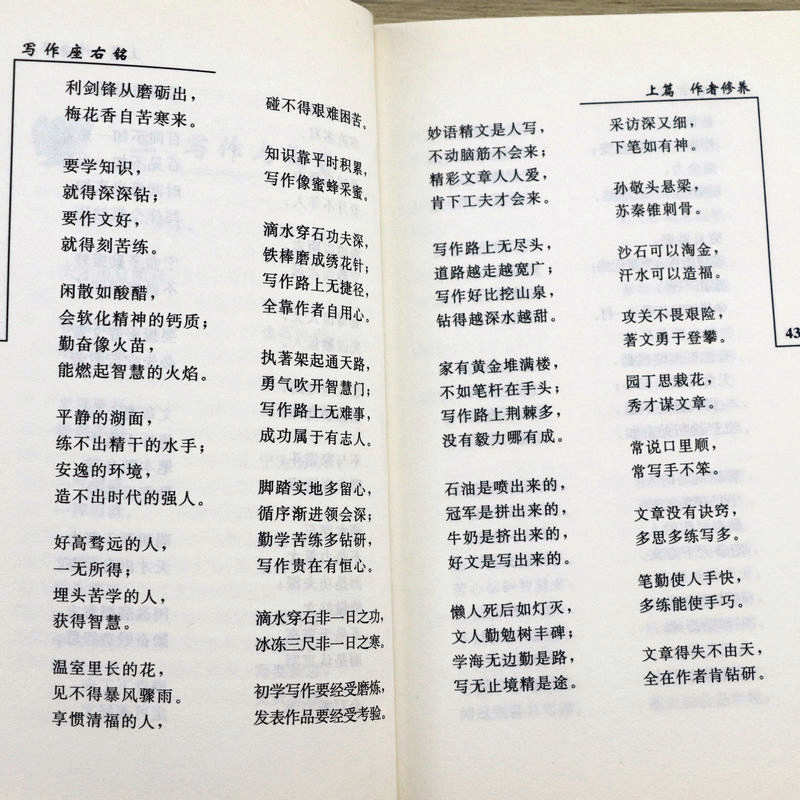 写作座右铭
利剑锋从磨砺出，
梅花香自苦寒来。
要学知识，
就得深深钻；
要作文好，
就得刻苦练。
闲散如酸醋，
会软化精神的钙质；
勤奋像火苗，
能燃起智慧的火焰。
平静的湖面，
练不出精干的水手；
安逸的环境，
造不出时代的强人。
好高骛远的人，
一无所得；
埋头苦学的人，
获得智慧。
温室里长的花，
见不得暴风骤雨。
享惯清福的人，
碰不得艰难困苦。
知识靠平时积累，
写作像蜜蜂采蜜。
滴水穿石功夫深，
铁棒磨成绣花针；
写作路上无捷径，
全靠作者自用心。
执著架起通天路，
勇气吹开智慧门；
写作路上无难事，
成功属于有志人。
脚踏实地多留心，
循序渐进领会深；
勤学苦练多钻研，
写作贵在有恒心。
滴水穿石非一日之功，
冰冻三尺非一日之寒。
初学写作要经受磨炼，
发表作品要经受考验。
上篇 作者修养
妙语精文是人写，
不动脑筋不会来；
精彩文章人人爱，
肯下工夫才会来。
写作路上无尽头，
道路越走越宽广；
写作好比挖山泉，
钻得越深水越甜。
家有黄金堆满楼，
不如笔杆在手头；
写作路上荆棘多，
没有毅力哪有成。
石油是喷出来的，
冠军是拼出来的，
牛奶是挤出来的，
好文是写出来的。
懒人死后如灯灭，
文人勤勉树丰碑；
学海无边勤是路，
写无止境精是途。
采访深又细，
下笔如有神。
孙敬头悬梁，
苏秦锥刺骨。
沙石可以淘金，
汗水可以造福。
攻关不畏艰险，
著文勇于登攀。
园丁思栽花，
秀才谋文章。
常说口里顺，
常写手不笨。
文章没有诀窍，
多思多练写多。
笔勤使人手快，
多练能使手巧。
文章得失不由天，
全在作者肯钻研。
43